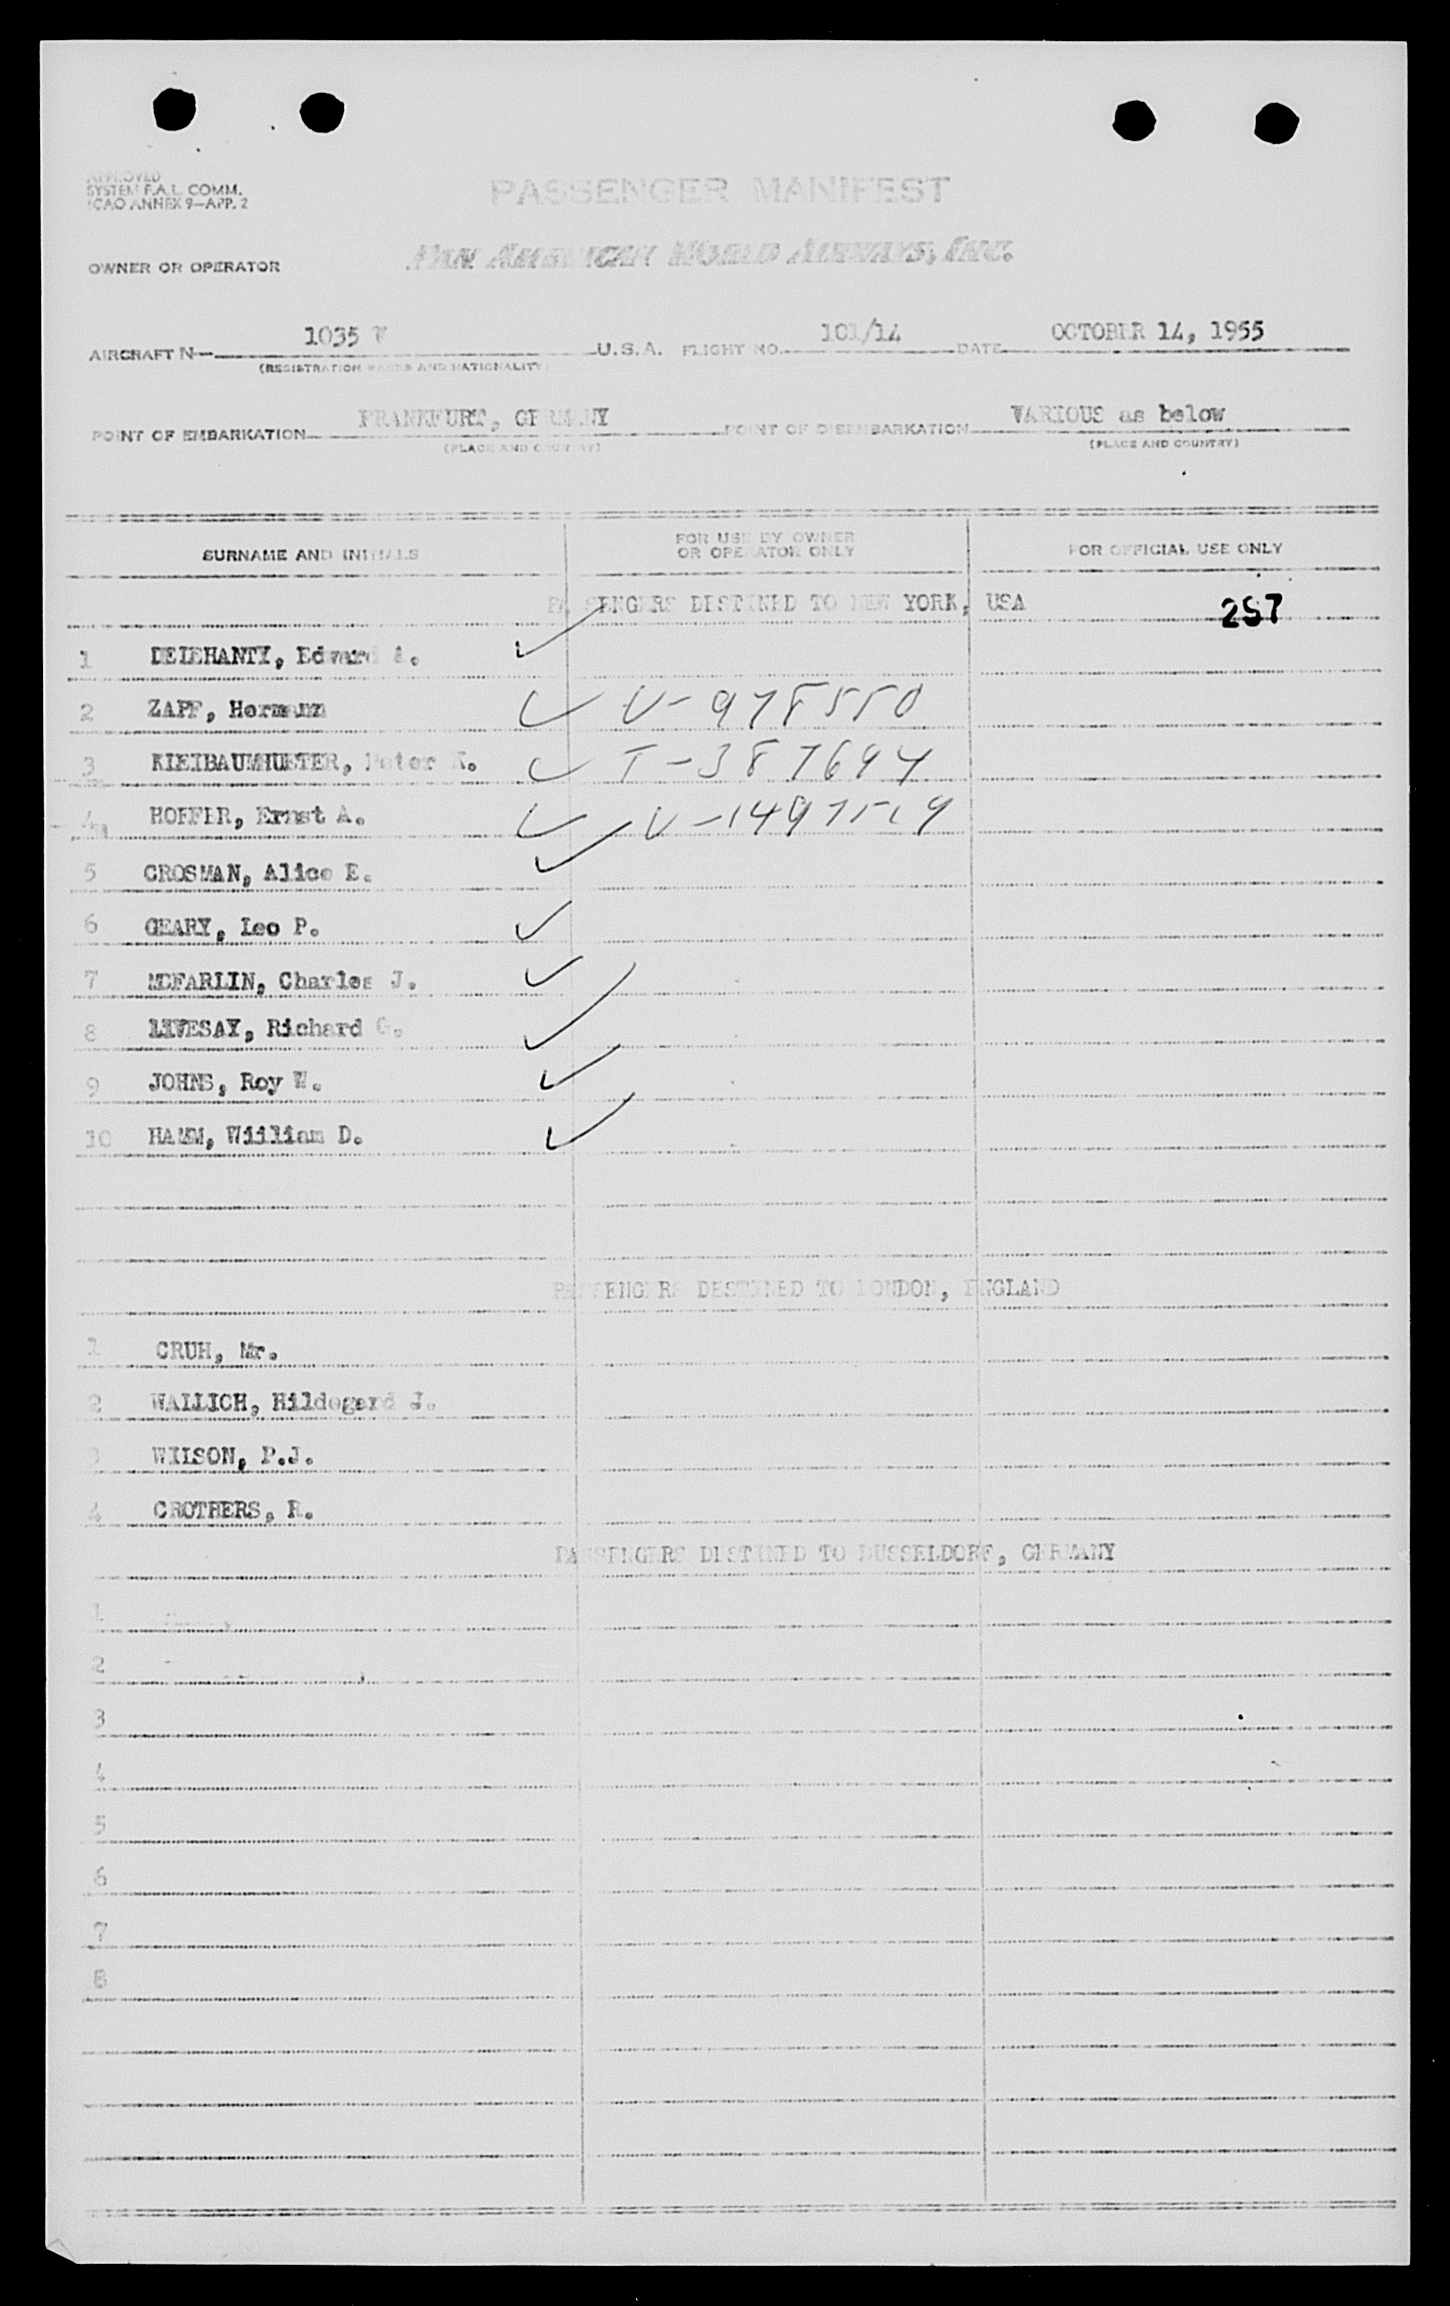 APPROVED
SYSTEM F.A.L. COMM.
ICAO ANNEX 9—APP. 2
PASSENGER MANIFEST
OWNER OR OPERATOR PAN AMERICAN WORLD AIRWAYS, INC.
AIRCRAFT N— 1035 V U.S.A. FLIGHT NO. 101/14 DATE OCTOBER 14, 1955
(REGISTRATION MARKS AND NATIONALITY)
POINT OF EMBARKATION FRANKFURT, GERMANY POINT OF DISEMBARKATION VARIOUS as below
(PLACE AND COUNTRY) (PLACE AND COUNTRY)
SURNAME AND INITIALS FOR USE BY OWNER OR OPERATOR ONLY FOR OFFICIAL USE ONLY
PASSENGERS DESTINED TO NEW YORK, USA 257
1 DELEHANTY, Edward A. ✓
2 ZAPF, Hermann ✓ V-978550
3 KLEIBAUMHUETER, Peter K. ✓ T-387694
4 HOFFER, Ernst A. ✓ V-1497519
5 CROSMAN, Alice E. ✓
6 GEARY, Leo P. ✓
7 MCFARLIN, Charles J. ✓
8 LIVESAY, Richard G. ✓
9 JOHNS, Roy W. ✓
10 HAMM, William D. ✓
PASSENGERS DESTINED TO LONDON, ENGLAND
1 CRUH, Mr.
2 WALLICH, Hildegard J.
3 WILSON, P.J.
4 CROTHERS, R.
PASSENGERS DESTINED TO DUSSELDORF, GERMANY
1
2
3
4
5
6
7
8